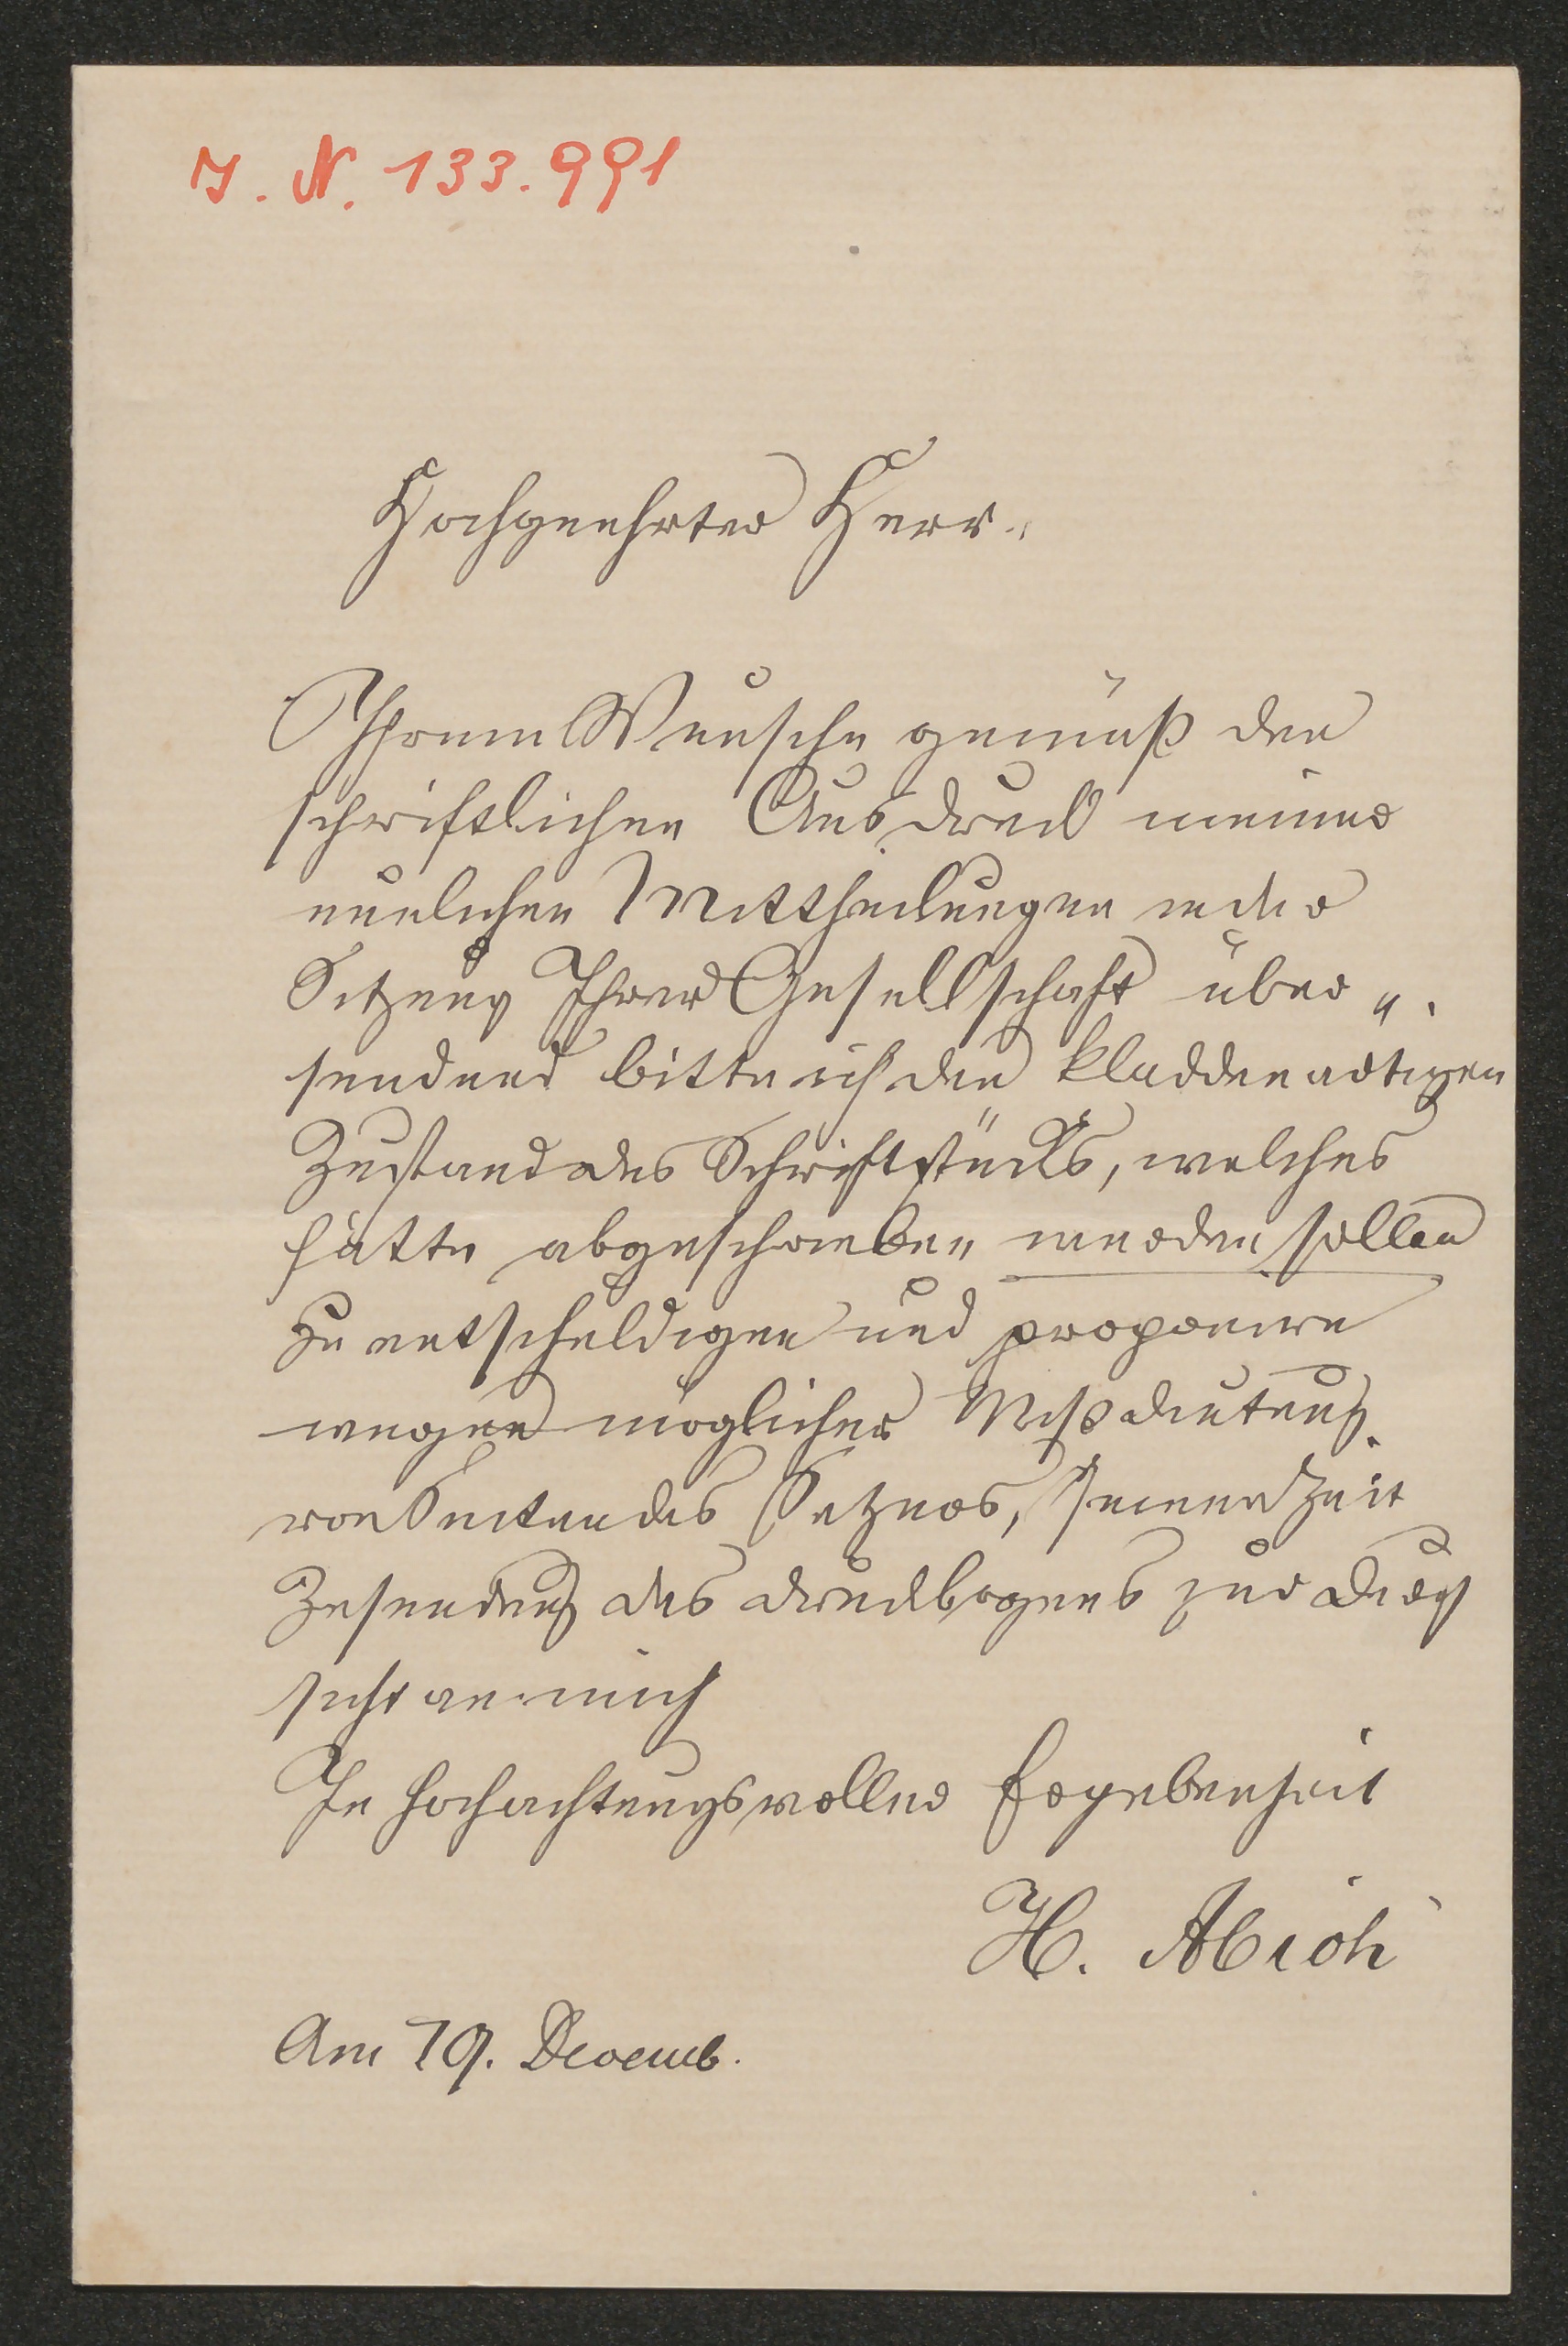 J. N. 133.991
Hochgeehrter Herr.
Ihrem Wunsche gemäß den
schriftlichen Ausdruck meiner
neulichen Mittheilungen in der
Sitzung Ihrer Gesellschaft über„
sendend bitte ich den kladdenartigen
Zustand des Schriftstücks, welches
hätte abgeschrieben werden sollen
zu entschuldigen und proponire
wegen möglicher Mißdeutung
von Seiten des Setzers, seiner Zeit
Zusendung des Druckbogens zur Durch
sicht an mich
In hochachtungsvoller Ergebenheit
H. Abich
Am 19. Decemb.